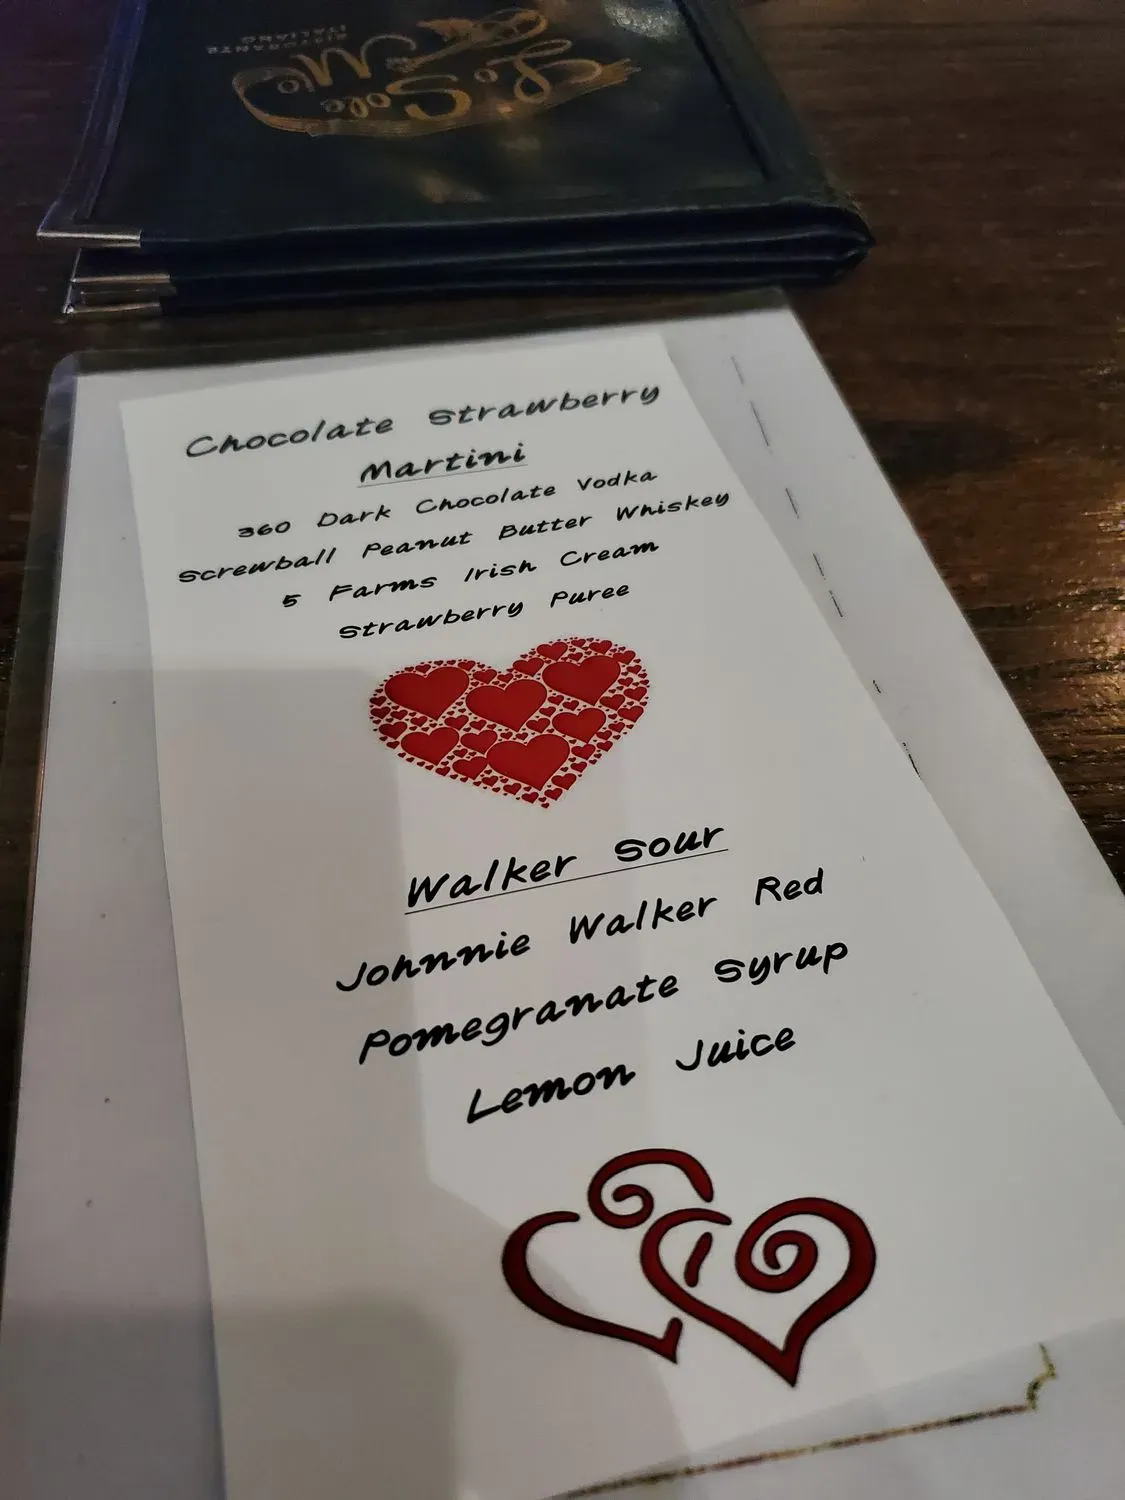 Lo Sole
Mio
RISTORANTE
ITALIANO
Chocolate Strawberry
Martini
360 Dark Chocolate Vodka
Screwball Peanut Butter Whiskey
5 Farms Irish Cream
Strawberry Puree
Walker Sour
Johnnie Walker Red
Pomegranate Syrup
Lemon Juice